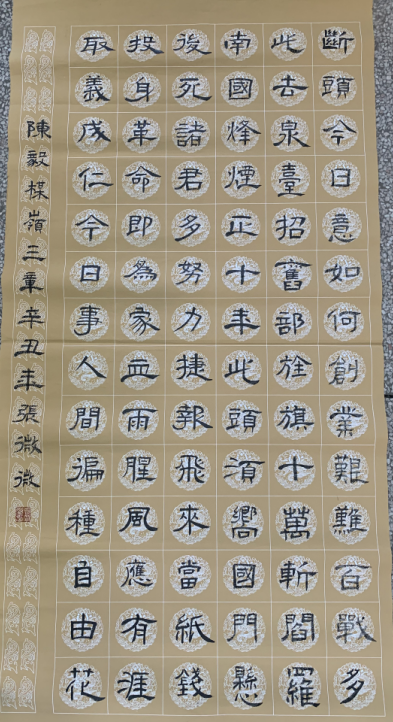 斷頭今日意如何創業艱難百戰多
此去泉臺招舊部旌旗十萬斬閻羅
南國烽煙正十年此頭須嚮國門懸
後死諸君多努力捷報飛來當紙錢
投身革命即為家血雨腥風應有涯
取義成仁今日事人間徧種自由花
陳毅楳嶺三章辛丑年張微微